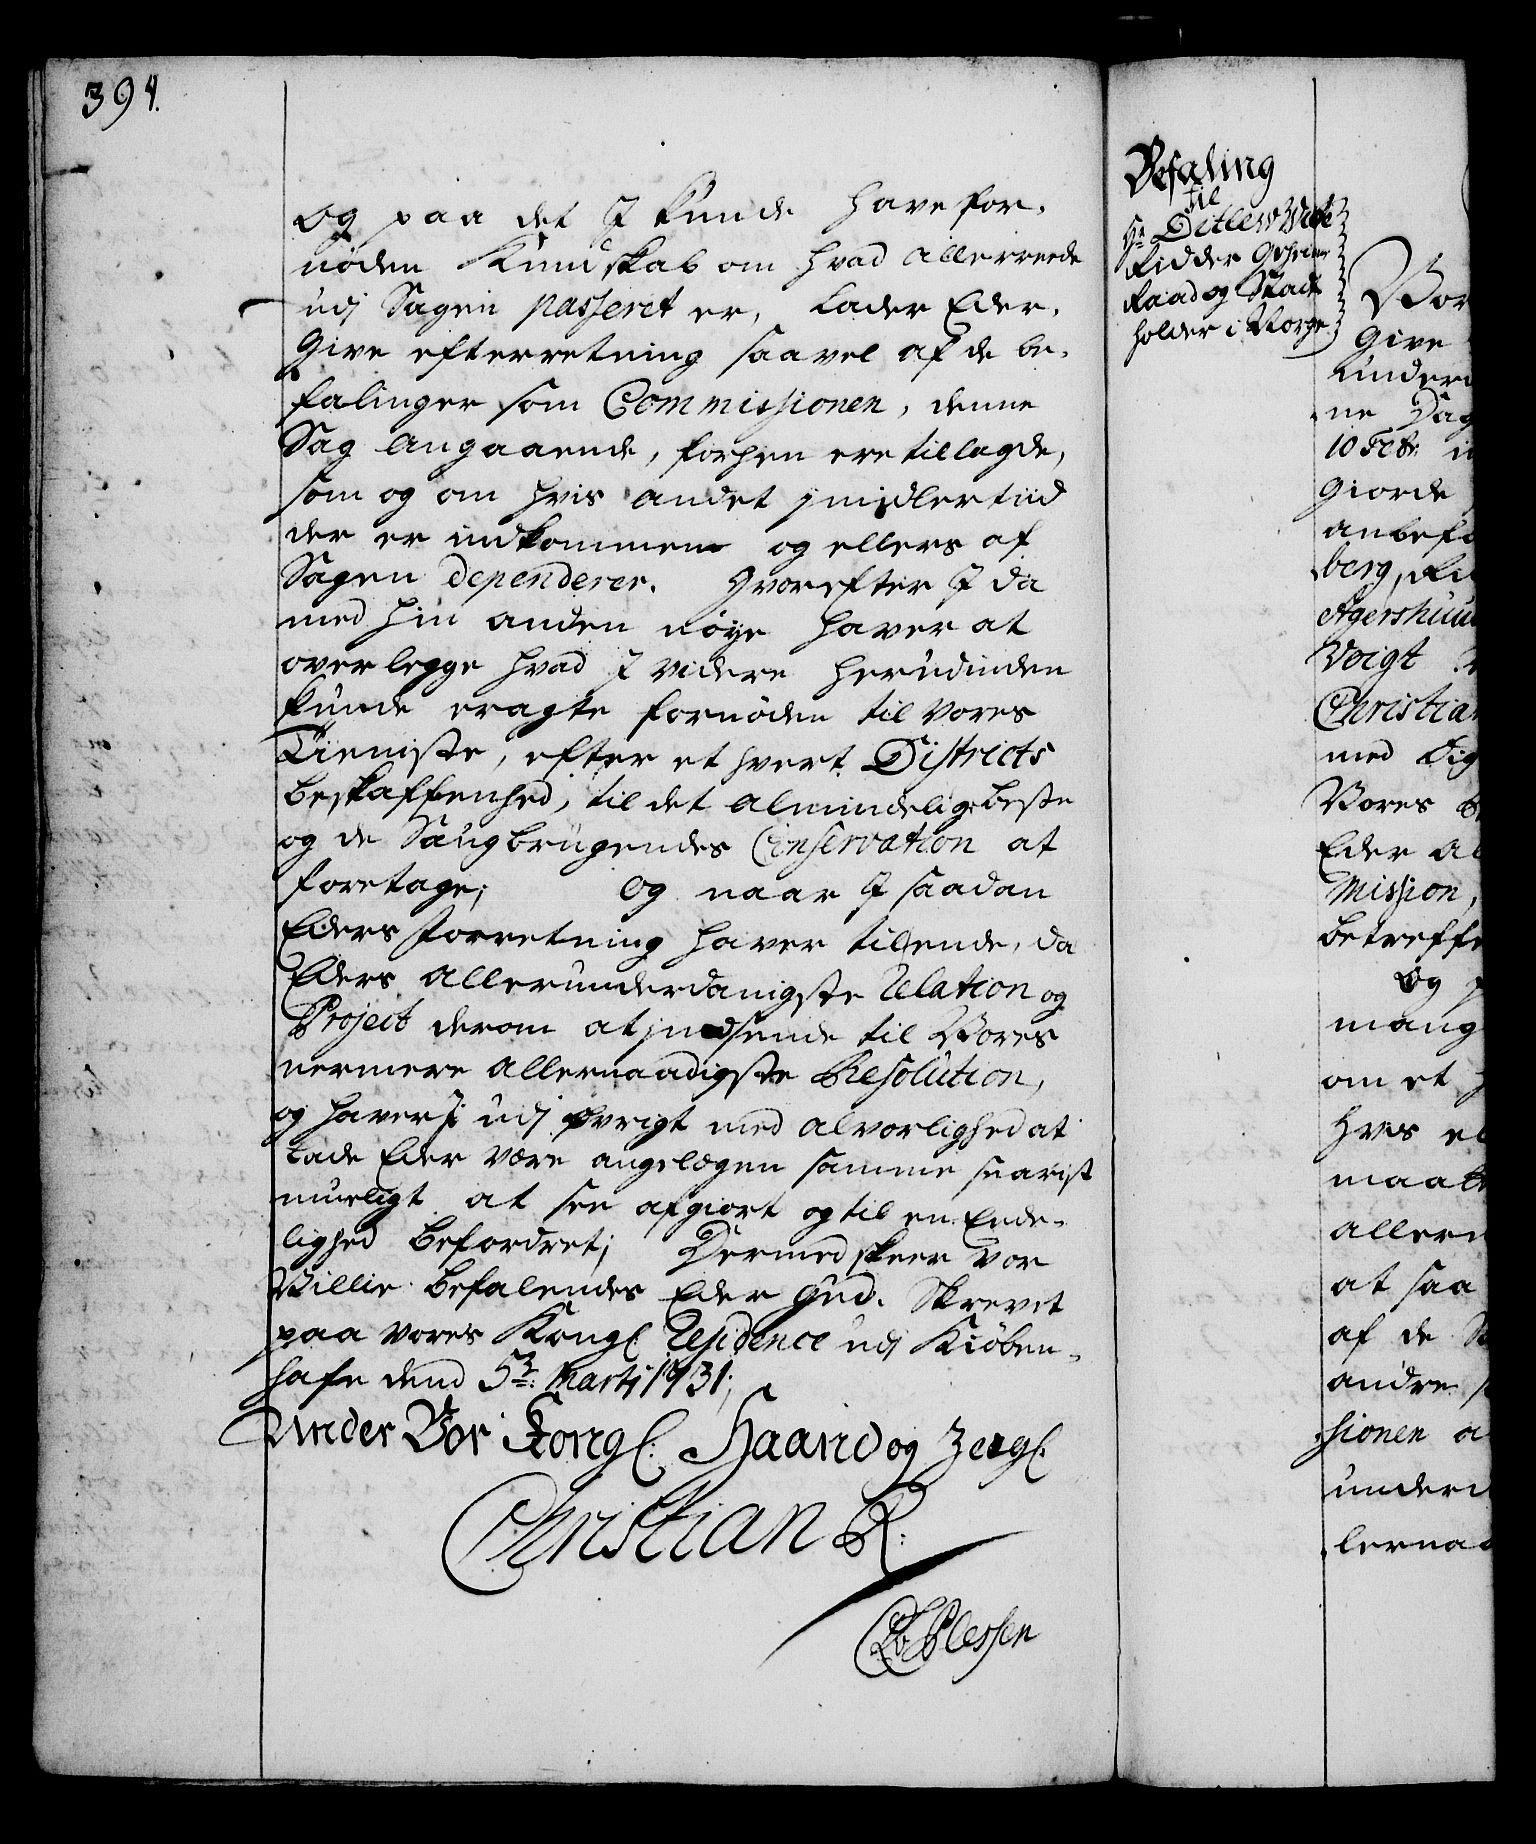 394.
og paa det I kunde have for-
nöden Kundskab om hvad allerreede
udj Sagen passeret er, Lader Eder,
Give efterretning saavel af de be-
falinger som Commissionen, denne
Sag angaaende, forhen ere tillagde,
som og om hvis andet jmidlertiid
der er indkommen og ellers af
Sagen dependerer. Hvorefter I da
med hin anden nöye haver at
overlegge hvad I videre herudinden
kunde eragte fornöden til Vores
Tieniste, efter et hvert Districts
beskaffenhed, til det almindelige beste
og de Saugbrugendes Conservation at
foretage; Og naar I saadan
Eders Forretning haver tilende, da
Eders allerunderdanigste Relation og
Project derom at jndsende til Vores
nermere allernaadigste Resolution,
og haver I udj övrigt med alvorlighed at
Lade Eder være angelægen samme snarist
mueligt at see afgiort og til en Ende-
lighed befordret; Dermed skeer Vor
Villie. befalendes Eder Gud. Skrevet
paa vores Kongl: Residence udj Kiöben-
hafn dend 5te: Martj 1731;
Under Vor Kongl: Haand og Zegl:
Christian R:
CA Plessen
Befaling
til
Hr Ditlew Vibe
Ridder Geheime
Raad og Stadt
holder i Norge
Vor
Give
Under
ne Dag
10 Febr: i
Giorde
anbefa
berg, Ri
Agershuu
Voigt
Christian
med Dig
Vores B
Eder al
Mission,
betreffe
Og p
mang
om et h
hvis el
maatt
allern
at saa
af de S
andre s
sionen a
underd
lernaa